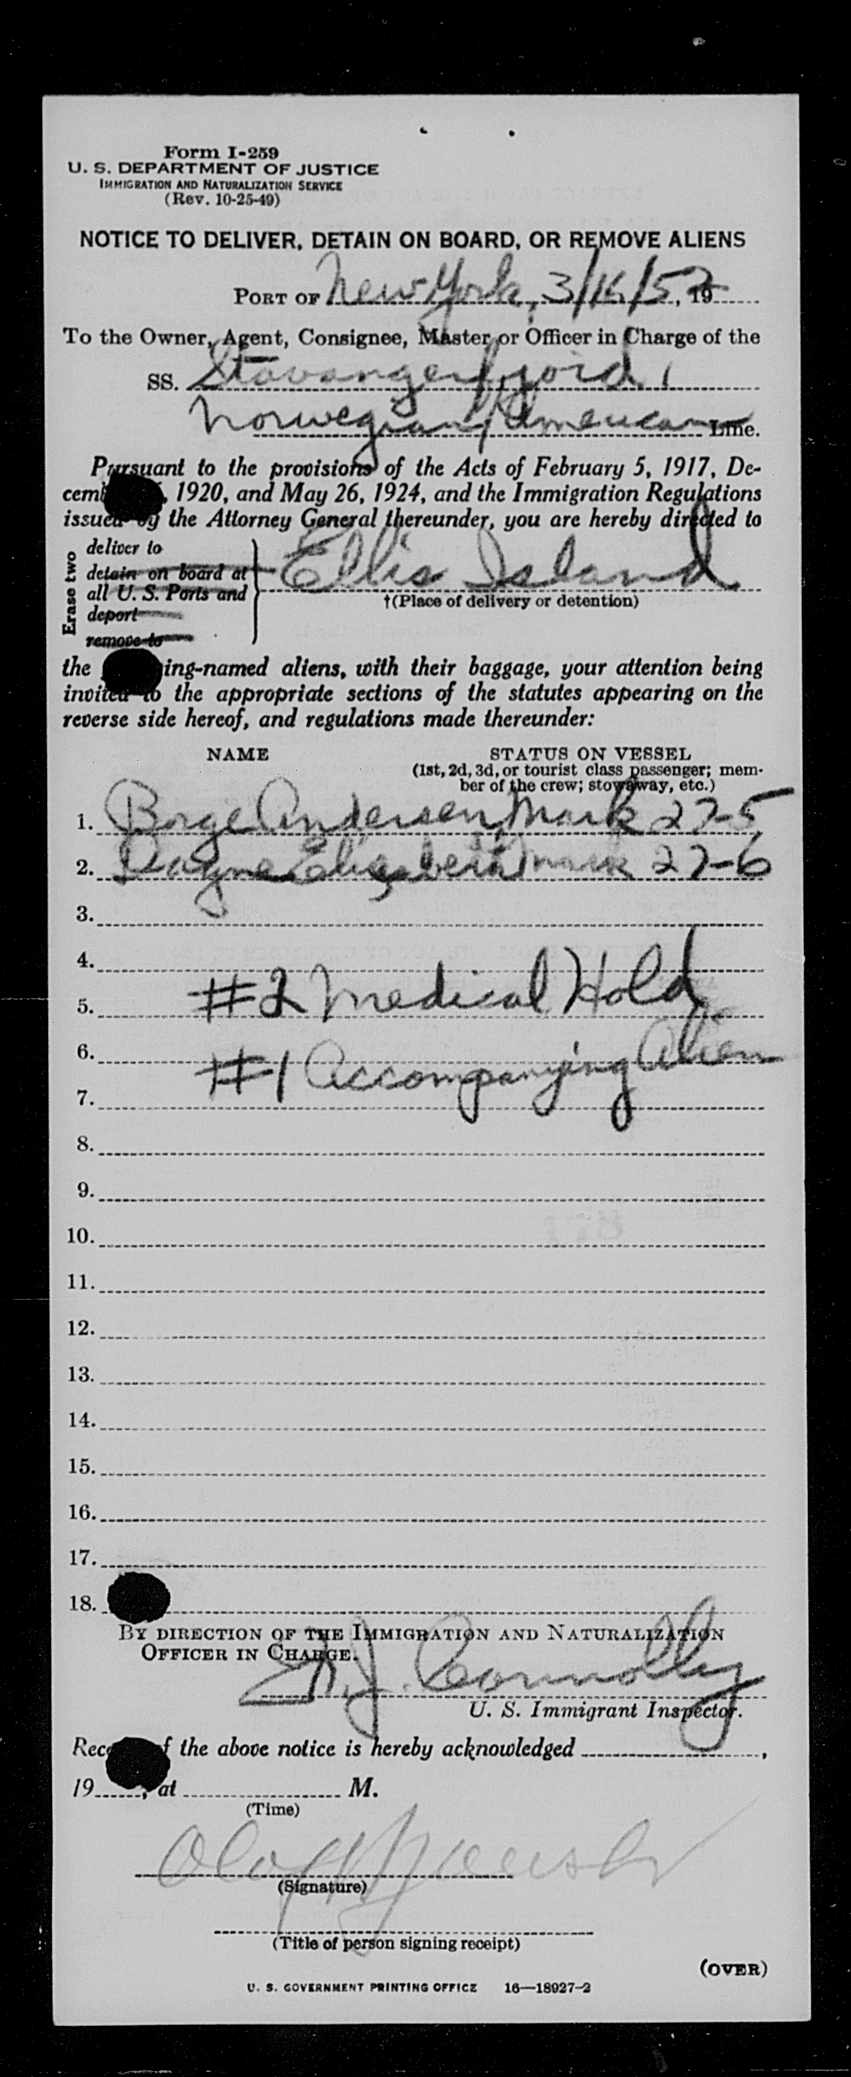 Form I-259
U. S. DEPARTMENT OF JUSTICE
IMMIGRATION AND NATURALIZATION SERVICE
(Rev. 10-25-49)
NOTICE TO DELIVER, DETAIN ON BOARD, OR REMOVE ALIENS
PORT OF New York, 3/16/52, 19
To the Owner, Agent, Consignee, Master or Officer in Charge of the
SS. Stavangerfjord,
Norwegian American Line.
Pursuant to the provisions of the Acts of February 5, 1917, De-
cem , 1920, and May 26, 1924, and the Immigration Regulations
issued by the Attorney General thereunder, you are hereby directed to
Erase two
deliver to
detain on board at
all U. S. Ports and
deport
remove to
Ellis Island
†(Place of delivery or detention)
the ing-named aliens, with their baggage, your attention being
invited to the appropriate sections of the statutes appearing on the
reverse side hereof, and regulations made thereunder:
NAME STATUS ON VESSEL
(1st, 2d, 3d, or tourist class passenger; mem-
ber of the crew; stowaway, etc.)
1. Borge Andersen Mark 27-5
2. Dagne Mark 27-6
3.
4.
5. #2 Medical Hold
6. #1 Accompanying Alien
7.
8.
9.
178
10.
11.
12.
13.
14.
15.
16.
17.
18.
BY DIRECTION OF THE IMMIGRATION AND NATURALIZATION
OFFICER IN CHARGE.
J. Connolly
U. S. Immigrant Inspector.
Rec f the above notice is hereby acknowledged ,
19 , at M.
(Time)
(Signature)
(Title of person signing receipt)
(OVER)
U. S. GOVERNMENT PRINTING OFFICE 16—18927-2